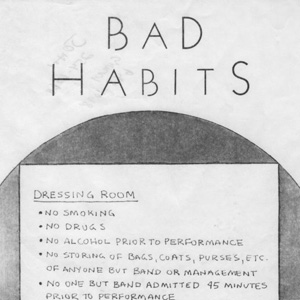 BAD
HABITS
DRESSING ROOM
• NO SMOKING
• NO DRUGS
• NO ALCOHOL PRIOR TO PERFORMANCE
• NO STORING OF BAGS, COATS, PURSES, ETC.
OF ANYONE BUT BAND OR MANAGEMENT
• NO ONE BUT BAND ADMITTED 45 MINUTES
PRIOR TO PERFORMANCE